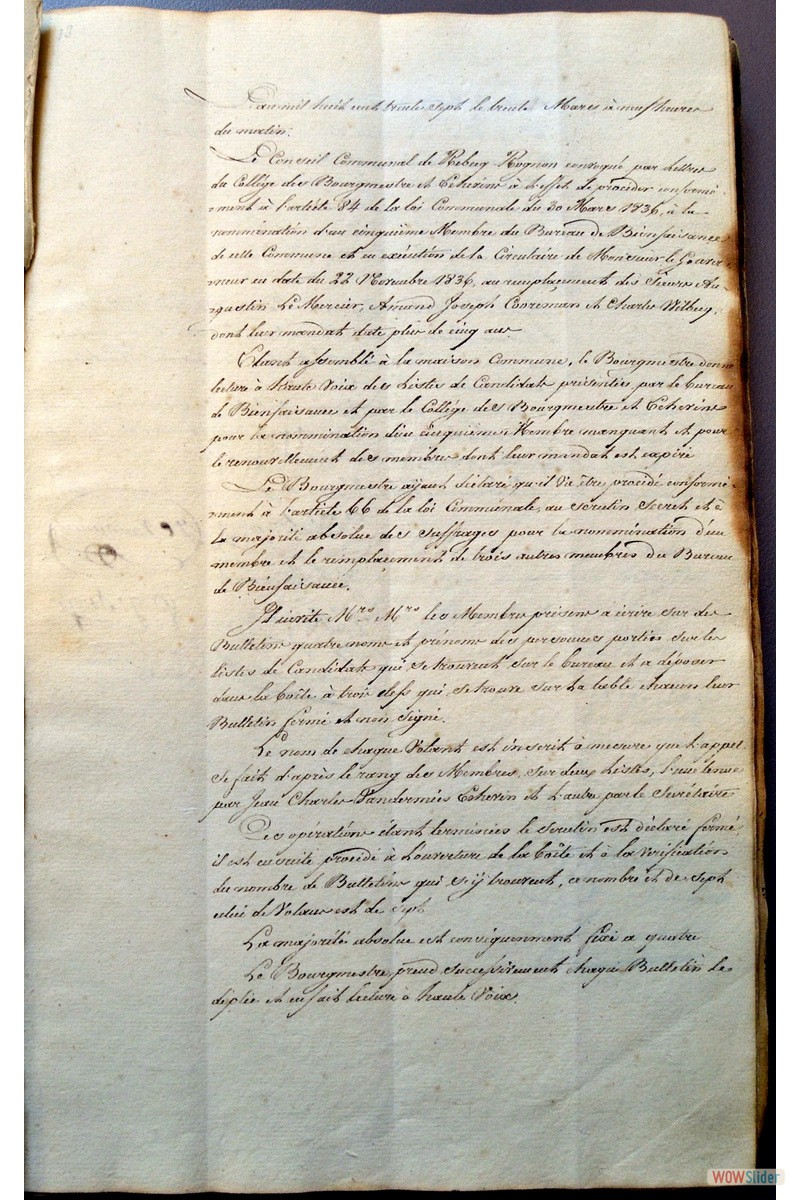 L'an mil huit cent trente sept le trente Mars à neuf heures
du matin.
Le Conseil Communal de Rebecq Rognon convoqué par lettres
du Collége des Bourgmestre et Echevins à l'effet de procéder conformé-
ment à l'article 84 de la loi Communale du 30 Mars 1836, à la
nommination d'un cinquième Membre du Bureau de Bienfaisance
de cette Commune et en exécution de la Circulaire de Monsieur le Gouver-
neur en date du 22 Novembre 1836, au remplaçement des Sieurs Au-
gustin Le Mercier, Amand Joseph Cooreman et Charles Wilbeg,
dont leur mandat date plus de cinq ans.
Etant assemblé à la maison Commune, le Bourgmestre donne
lecture à haute voix des Listes de Candidats présentées par le bureau
de Bienfaisance et par le Collége des Bourgmestre et Echevins
pour la nommination d'un cinquième Membre manquant et pour
le renouvellement des membres dont leur mandat est expiré
Le Bourgmestre ayant déclaré qu'il va être procédé conformé-
ment à l'article 66 de la loi Communale, au scrutin secret et à
la majorité absolue des suffrages pour la nommination d'un
membre et le remplacement de trois autres membres du Bureau
de Bienfaisance.
Il invite Mrs Mrs les Membres présens a écrire sur des
Bulletins quatre noms et prénoms des personnes portées sur les
listes de Candidats qui se trouvent sur le bureau et a déposer
dans la boîte à trois clefs qui se trouve sur la table chacun leur
Bulletin fermé et non signé.
Le nom de chaque Votant est inscrit à mesure que l'appel
se fait d'après le rang des Membres, sur deux Listes, l'une tenue
par Jean Charles Vandermies Echevin et l'autre par le Secrétaire
Ces opérations étant terminées le scrutin est déclaré fermé
il est ensuite procédé à l'ouverture de la boîte et à la vérification
du nombre de Bulletins qui s'y trouvent, ce nombre est de sept
celui de Votans est de sept
La majorité absolue est conséquemment fixé a quatre
Le Bourgmestre prend successivement chaque Bulletin le
déplie et en fait lecture à haute voix.
WOWSlider